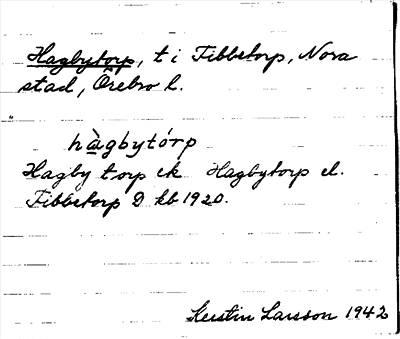 Hagbytorp, t i Fibbetorp, Nora
stad, Örebro l.
hàgbytórp
Hagby torp ek Hagbytorp el.
Fibbetorp D kb 1920.
Kerstin Larsson 1942